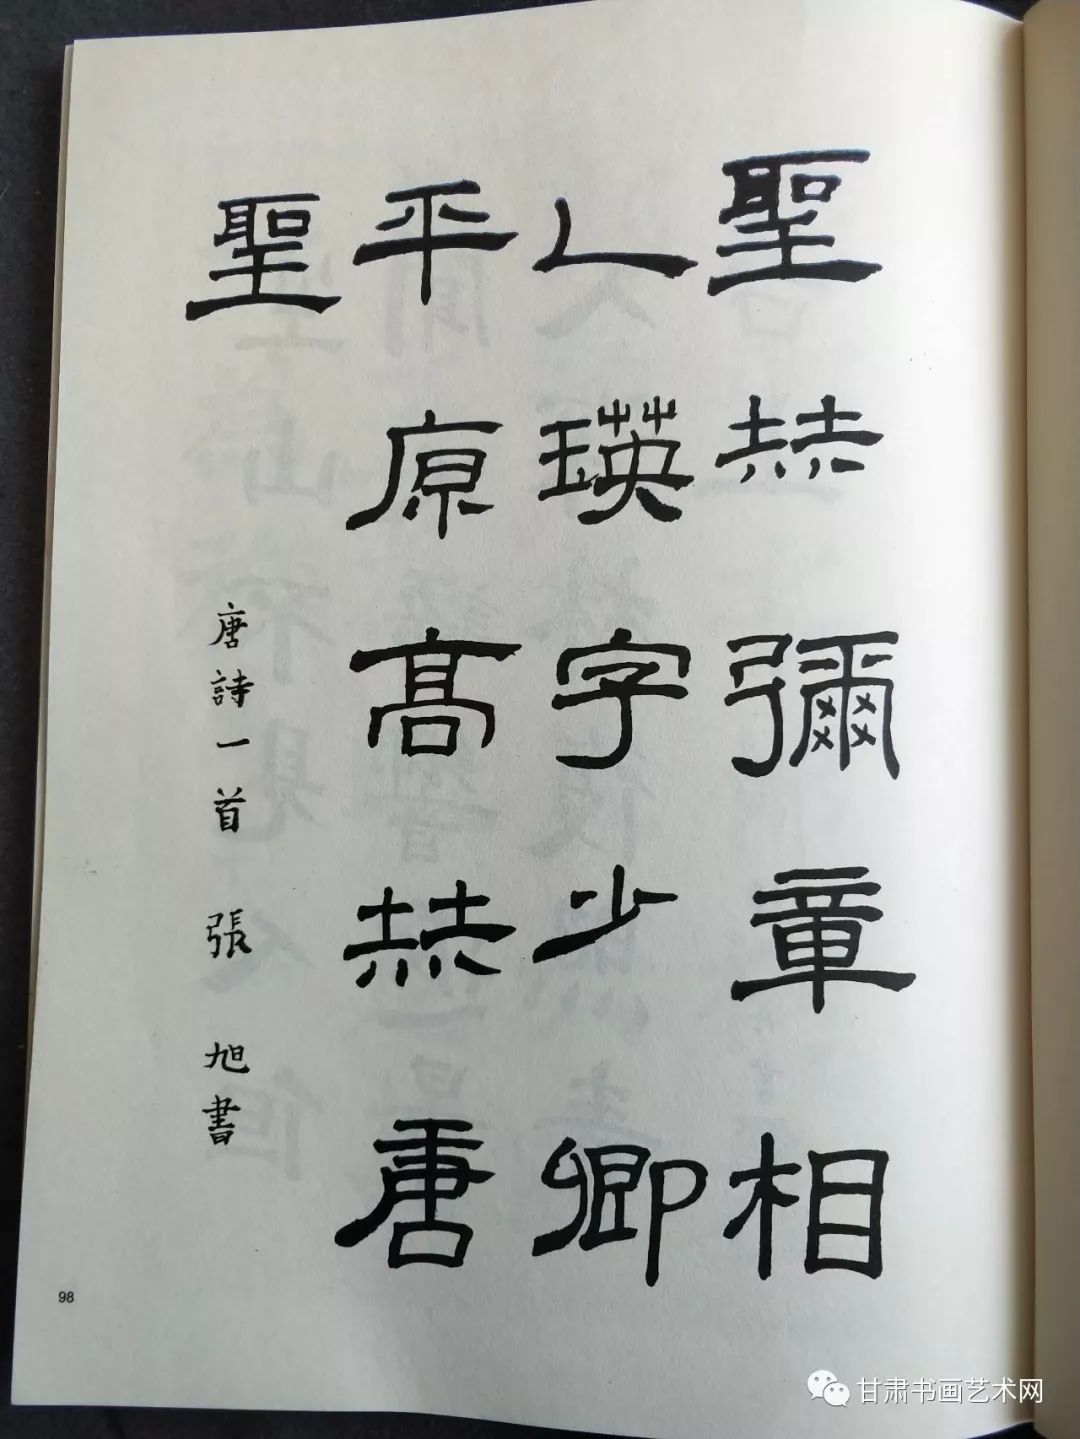 聖赫彌章相
人瑛字少卿
平原高赫唐
聖
唐詩一首 張旭書
98
甘肃书画艺术网